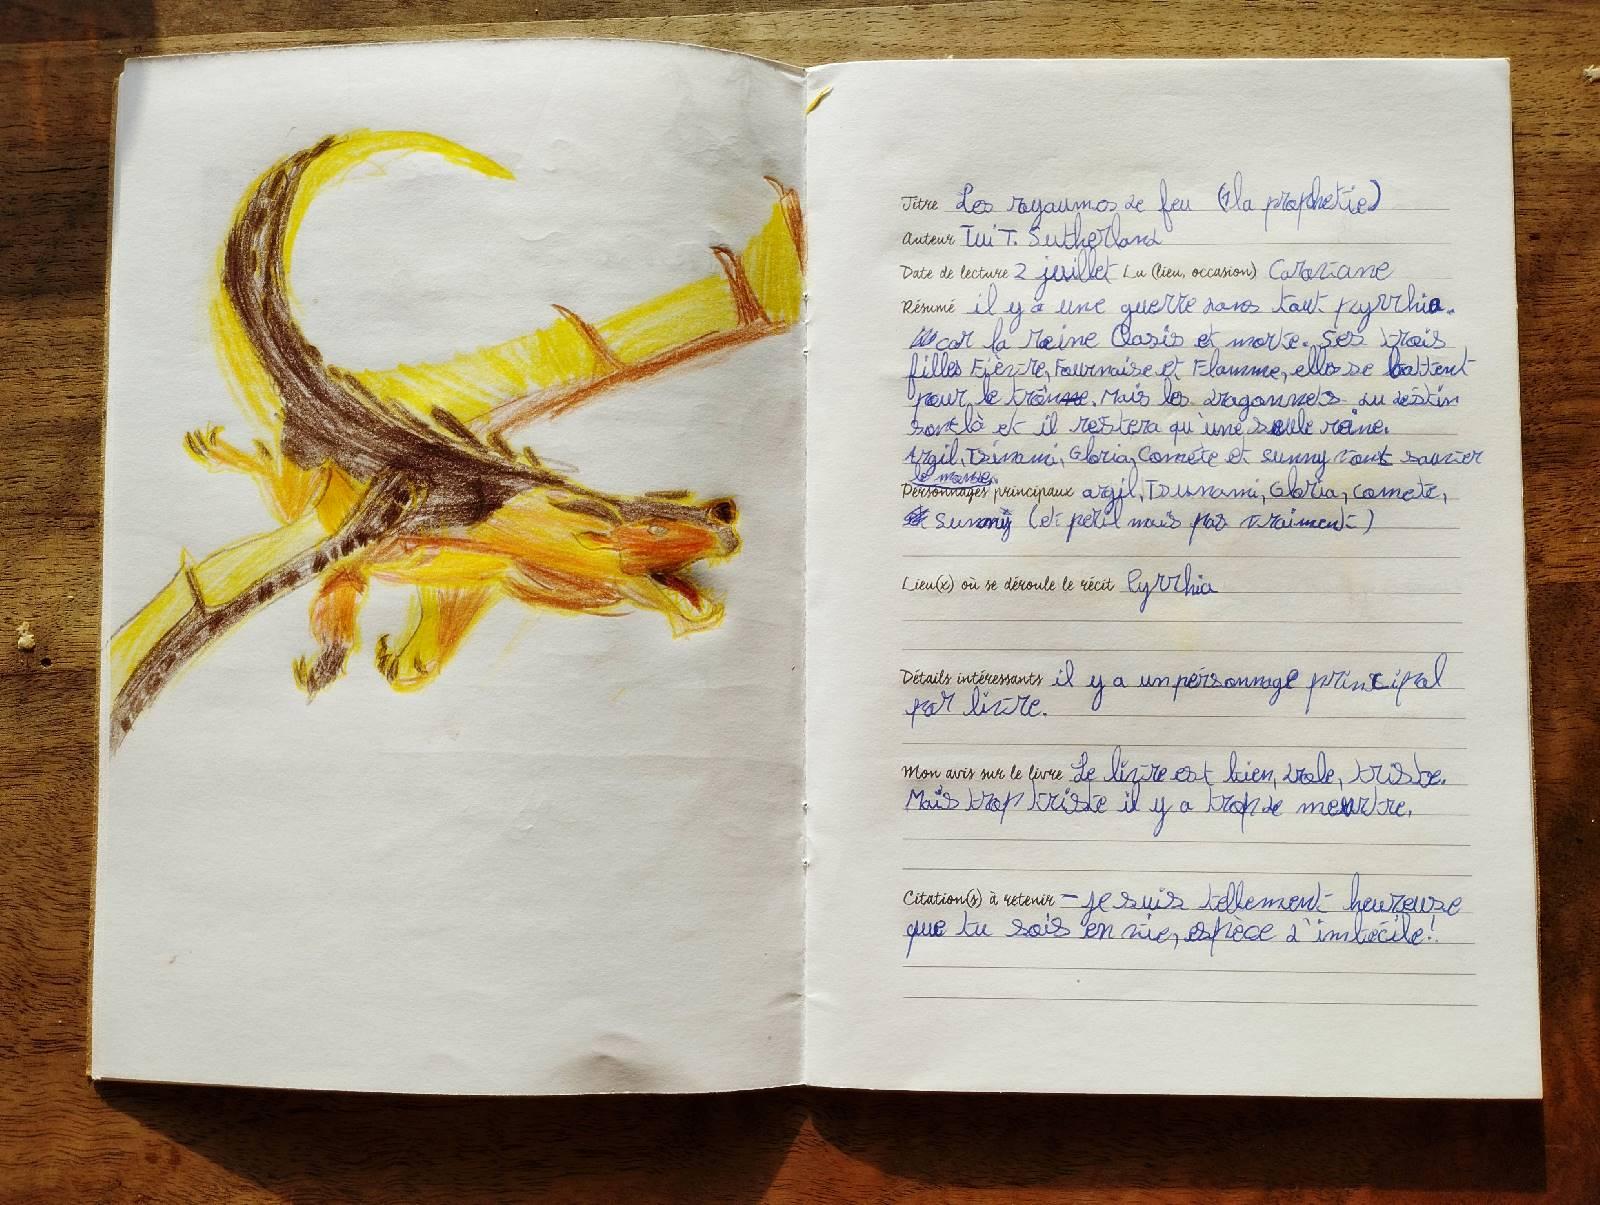 Titre Les royaumes de feu (1 la prophetie)
Auteur Tui T. Sutherland
Date de lecture 2 juillet Lu (lieu, occasion) Caravane
Résumé il y a une guerre dans tout pyrrhia.
car la reine Oasis et morte. Ses trois
filles Fièvre, Fournaise et Flamme, elles se battent
pour le trône. Mais les dragonnets du destin
sont là et il restera qu'une seule reine.
Argil, Tsunami, Gloria, Comète et Sunny vont sauver
le monde.
Personnages principaux argil, Tsunami, Gloria, Comete,
Sunny (et peril mais pas vraiment)
Lieu(x) où se déroule le récit Pyrrhia
Détails intéressants il y a un personnage principal
par livre.
Mon avis sur le livre Le livre est bien, drole, triste.
Mais trop triste il y a trop de meurtre.
Citation(s) à retenir - je suis tellement heureuse
que tu sois en vie, espèce d'imbecile!